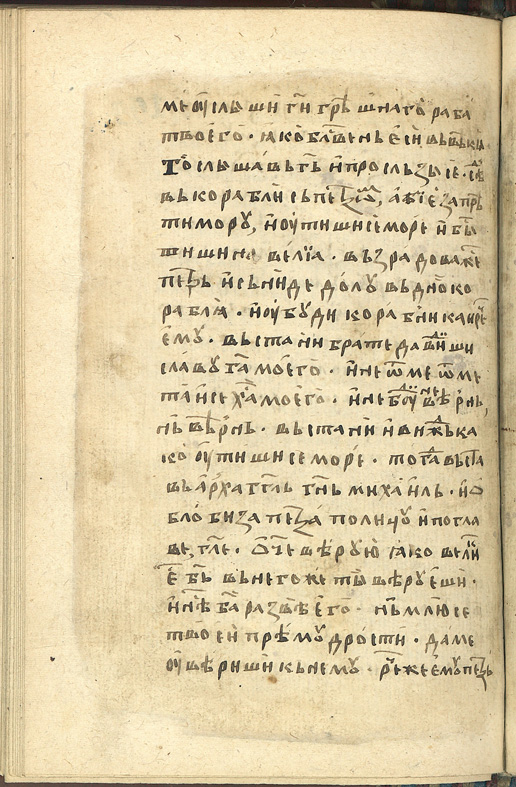 ме ѹслыши ги грѣшнаго раба
твоего · ꙗко блвень еси вь вѣкы
То слышавь гь и просльзы се ·
вь корабли сь петромь, абїе запрѣ
ти мору, и ѹтиши се море и бы
тишина велїа · възрадова же
петрь и сьниде долу вь дно ко
раблꙗ · и ѹбуди корабника и рече
ему · вьстани брате да видиши
славу га моего · и не ѿме ѿме
таи се ха моего · и не буди невѣрнь,
нь вѣрнь · вьстани и виждь ка
ко ѹтиши се море · тогда вьста
вь архаггль гнь михаиль · и о
блобиза петра по лицу и по гла
ве, гле · ѡче вѣрую ꙗко велїи
е бь вь него же ты вѣруеши ·
и нѣ ба развѣ его · нь млю се
твоеи прѣмудрости · да ме
ѹвѣриши кь нему · рече же ему петрь